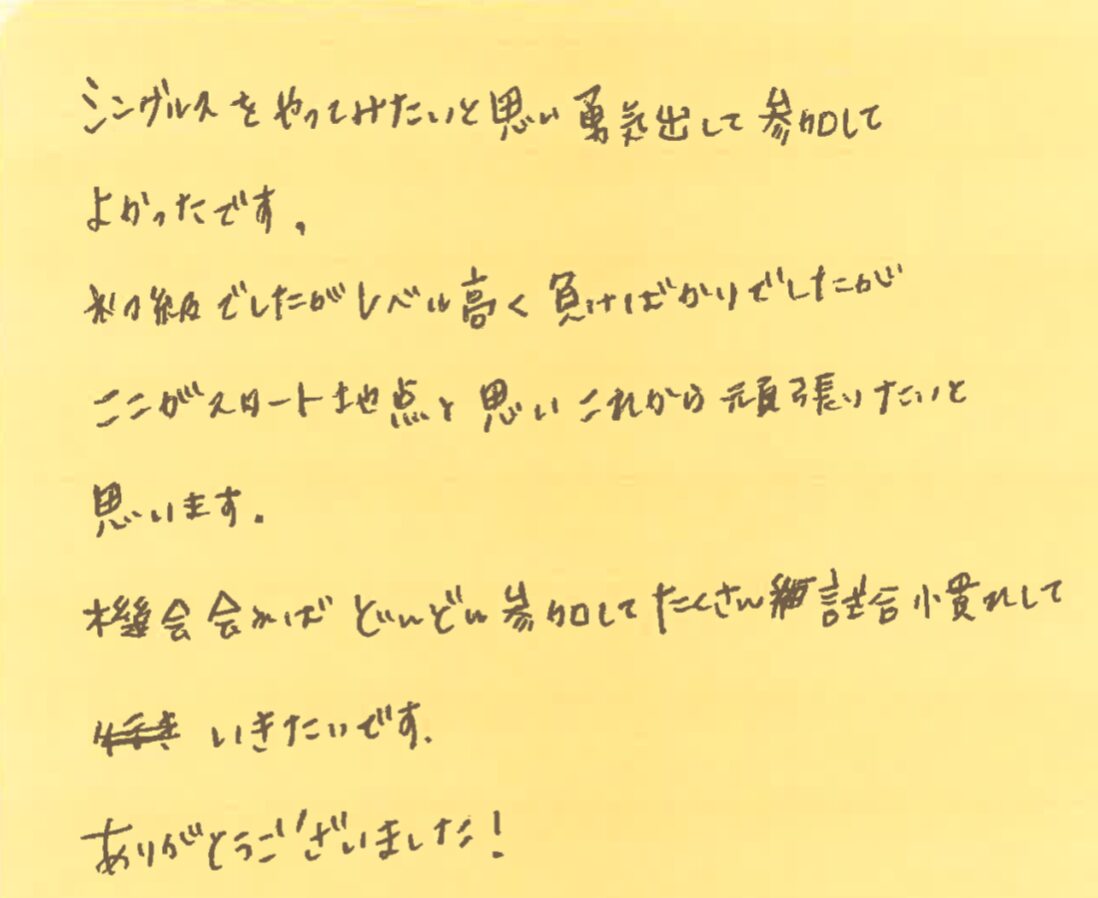 シングルスをやってみたいと思い勇気出して参加して
よかったです。
初級でしたがレベル高く負けばかりでしたが
ここがスタート地点と思いこれから頑張りたいと
思います。
機会会れば どんどん参加してたくさん試合慣れして
いきたいです.
ありがとうございました!